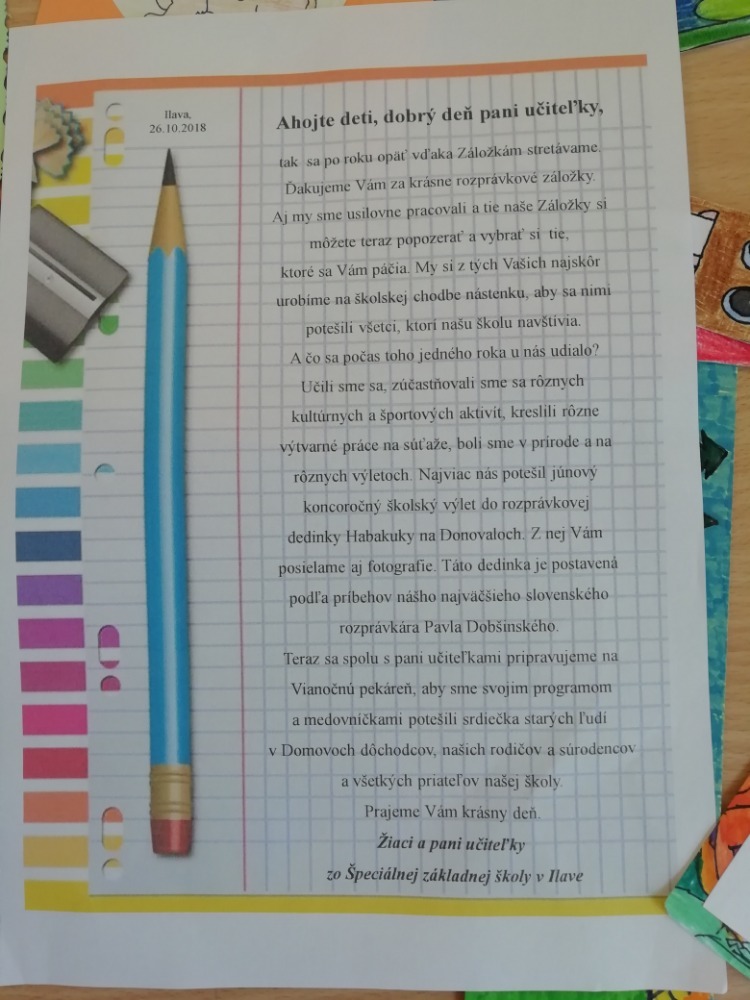 Ilava,
26.10.2018
Ahojte deti, dobrý deň pani učiteľky,
tak sa po roku opäť vďaka Záložkám stretávame.
Ďakujeme Vám za krásne rozprávkové záložky.
Aj my sme usilovne pracovali a tie naše Záložky si
môžete teraz popozerať a vybrať si tie,
ktoré sa Vám páčia. My si z tých Vašich najskôr
urobíme na školskej chodbe nástenku, aby sa nimi
potešili všetci, ktorí našu školu navštívia.
A čo sa počas toho jedného roka u nás udialo?
Učili sme sa, zúčastňovali sme sa rôznych
kultúrnych a športových aktivít, kreslili rôzne
výtvarné práce na súťaže, boli sme v prírode a na
rôznych výletoch. Najviac nás potešil júnový
koncoročný školský výlet do rozprávkovej
dedinky Habakuky na Donovaloch. Z nej Vám
posielame aj fotografie. Táto dedinka je postavená
podľa príbehov nášho najväčšieho slovenského
rozprávkára Pavla Dobšinského.
Teraz sa spolu s pani učiteľkami pripravujeme na
Vianočnú pekáreň, aby sme svojím programom
a medovníčkami potešili srdiečka starých ľudí
v Domovoch dôchodcov, našich rodičov a súrodencov
a všetkých priateľov našej školy.
Prajeme Vám krásny deň.
Žiaci a pani učiteľky
zo Špeciálnej základnej školy v Ilave